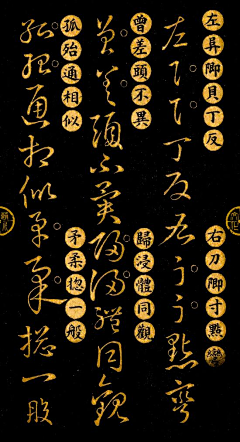 左脚貝丁反
右刀脚寸點彎
左丁反右點彎
曾差頭不異
歸浸體同觀
曾差頭不異歸浸體同觀
孤殆通相似
矛柔揔一般
孤殆通相似矛柔揔一般